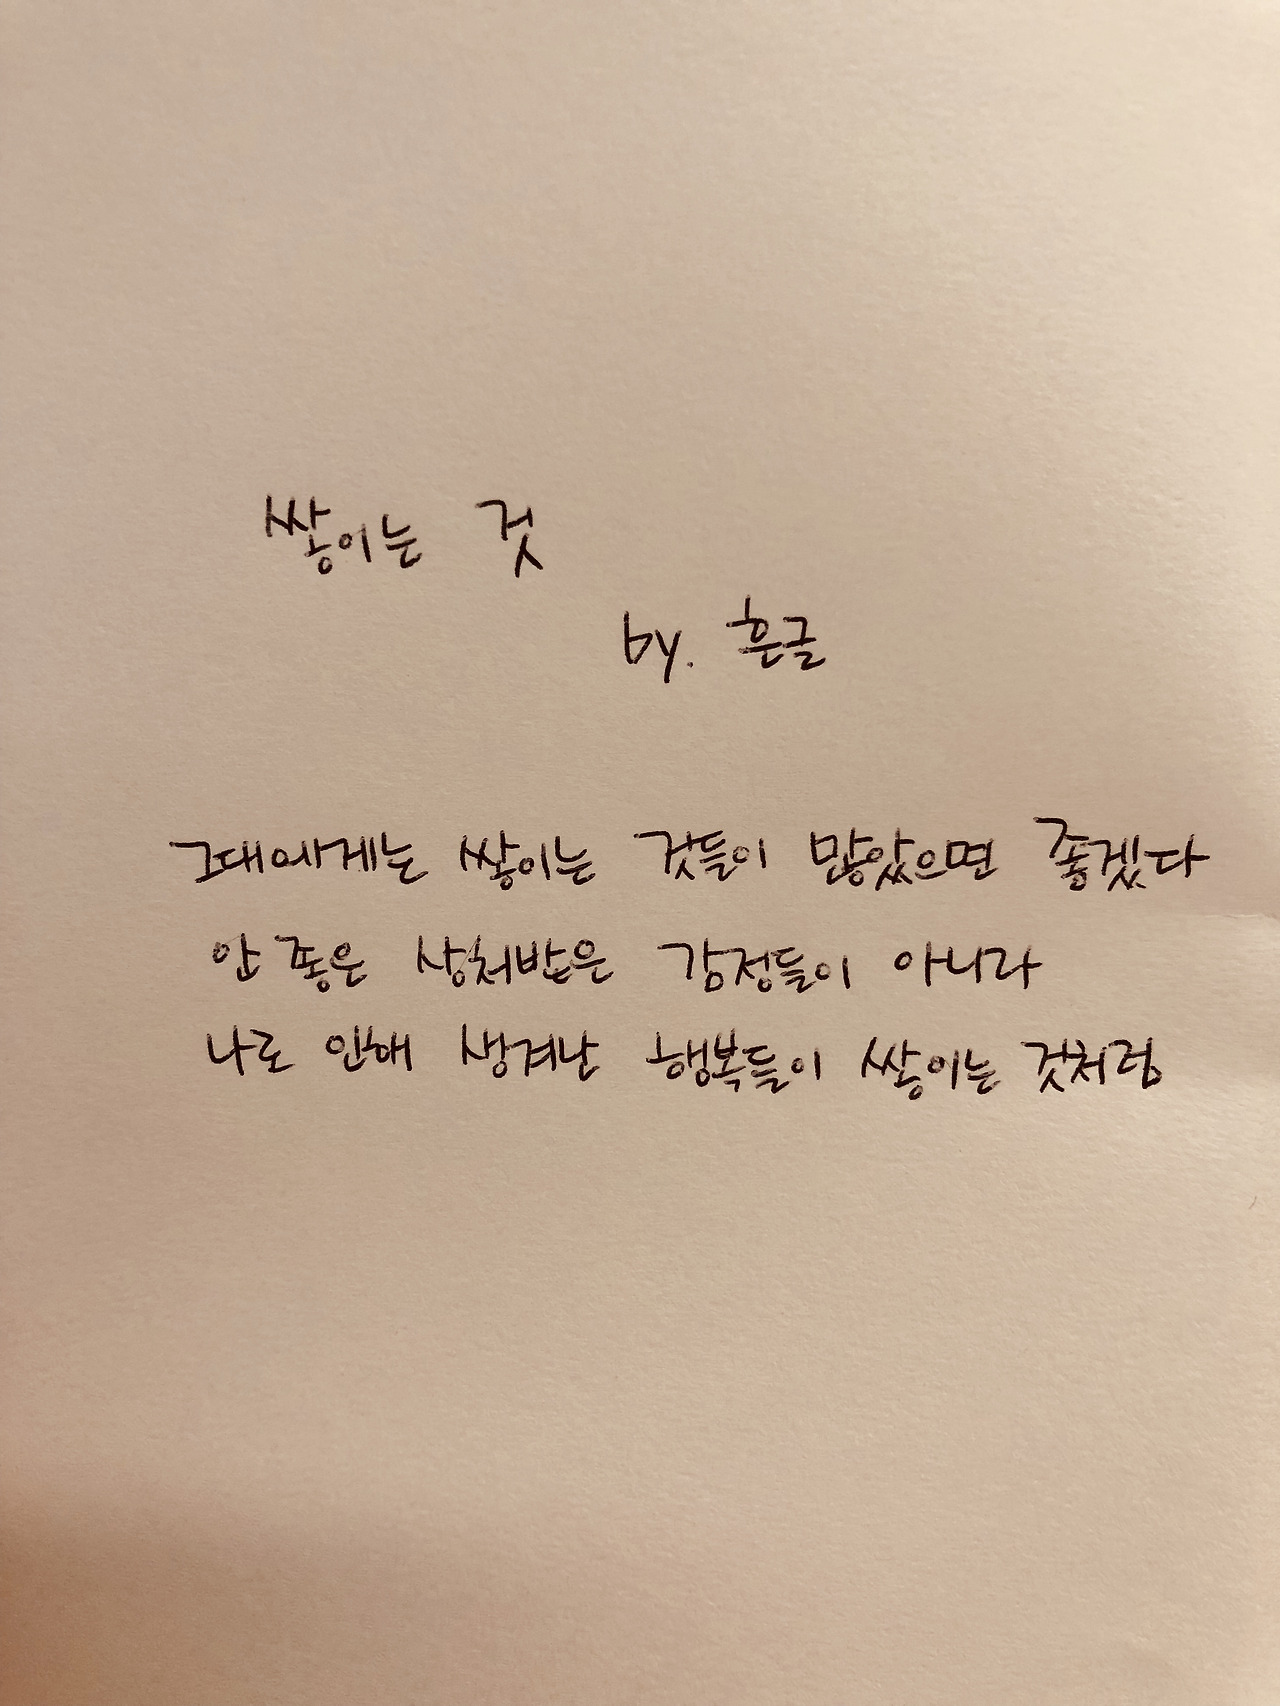 쌓이는 것
by. 흔글
그대에게는 쌓이는 것들이 많았으면 좋겠다
안 좋은 상처받은 감정들이 아니라
나로 인해 생겨난 행복들이 쌓이는 것처럼